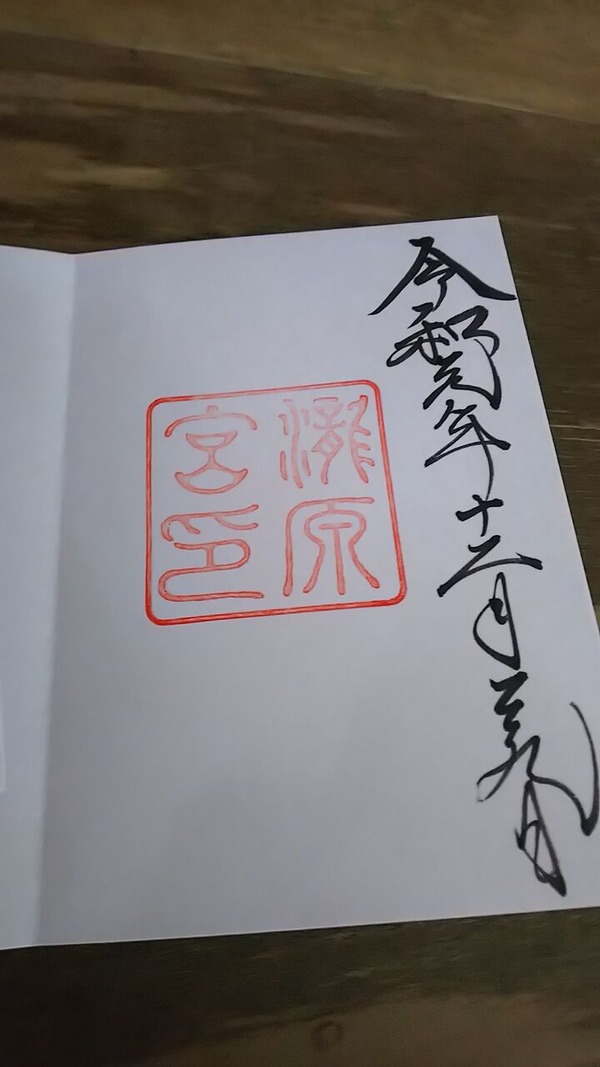 令和元年十二月二十九日
瀧原
宮印